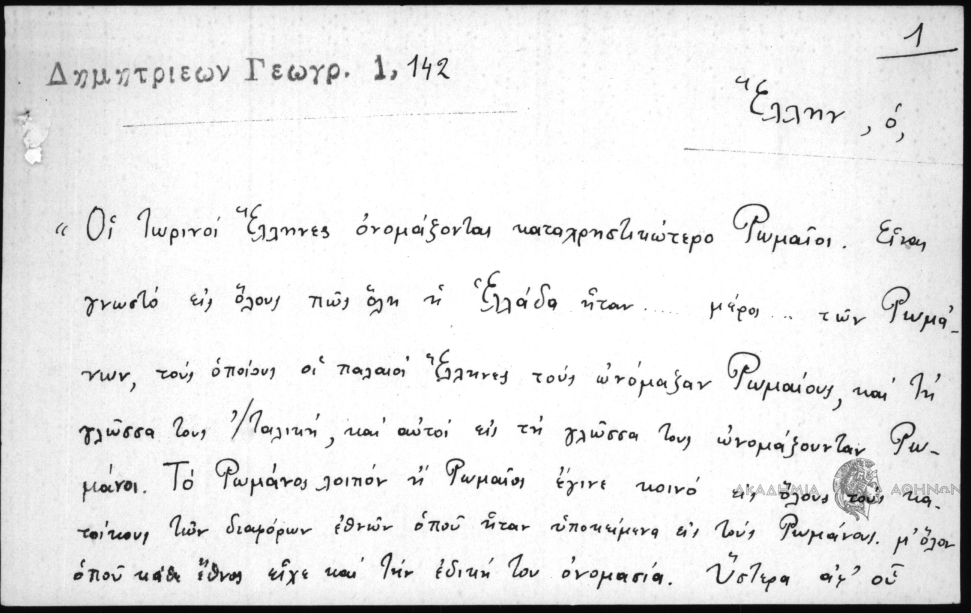 1
Δημητριεων Γεωγρ. 1, 142
Ἕλλην, ὁ,
“ Οἱ τωρινοὶ Ἕλληνες ὀνομάζονται καταχρηστικώτερο Ρωμαῖοι. Εἶναι
γνωστό εἰς ὅλους πῶς ὅλη ἡ Ἑλλάδα ἦταν .... μέρος ... τῶν Ρωμά-
νων, τοὺς ὁποίους οἱ παλαιοὶ Ἕλληνες τοὺς ὠνόμαζαν Ρωμαίους, καὶ τῇ
γλῶσσα τους Ἰταλική, καὶ αὐτοὶ εἰς τῇ γλῶσσα τους ὠνομάζουνταν Ρω-
μάνοι. Τὸ Ρωμάνος λοιπόν ἢ Ρωμαῖος ἔγινε κοινό εἰς ὅλους τοὺς κα-
τοίκους τῶν διαφόρων ἐθνῶν ὁποῦ ἦταν ὑποκείμενα εἰς τοὺς Ρωμάνους. μ’ ὅλον
ὁποῦ κάθε ἔθνος εἶχε καὶ τὴν ἐδική του ὀνομασία. Ὕστερα ἀφ’ οὗ
ΑΚΑΔΗΜΙΑ ΑΘΗΝΩΝ